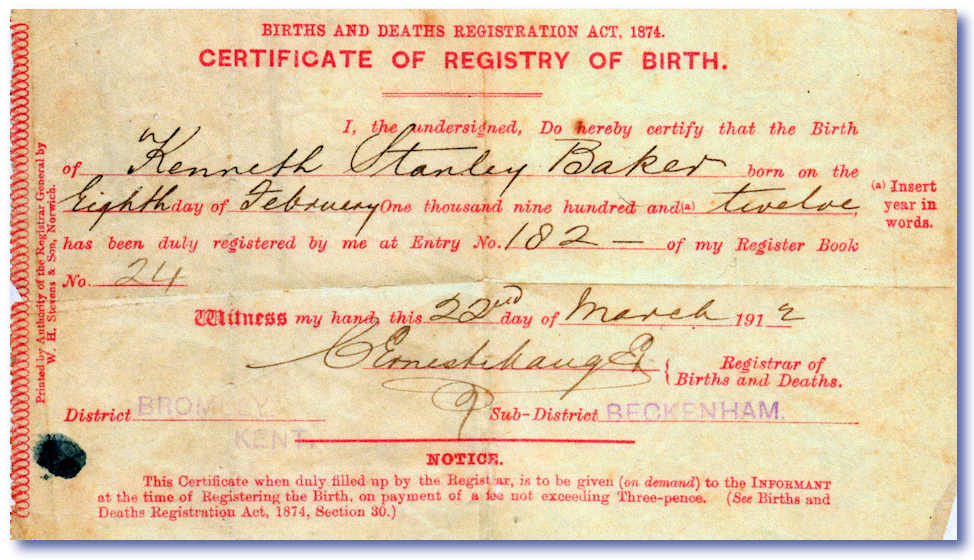 BIRTHS AND DEATHS REGISTRATION ACT, 1874.
CERTIFICATE OF REGISTRY OF BIRTH.
I, the undersigned, Do hereby certify that the Birth
of Kenneth Stanley Baker born on the
Eighth day of February One thousand nine hundred and (a) twelve
(a) Insert
year in
words.
has been duly registered by me at Entry No. 182 — of my Register Book
No. 24
Witness my hand, this 22nd day of March 1912
Registrar of
Births and Deaths.
District BROMLEY Sub-District BECKENHAM.
KENT.
NOTICE.
This Certificate when duly filled up by the Registrar, is to be given (on demand) to the INFORMANT
at the time of Registering the Birth, on payment of a fee not exceeding Three-pence. (See Births and
Deaths Registration Act, 1874, Section 30.)
Printed by Authority of the Registrar General by
W. H. Stevens & Son, Norwich.